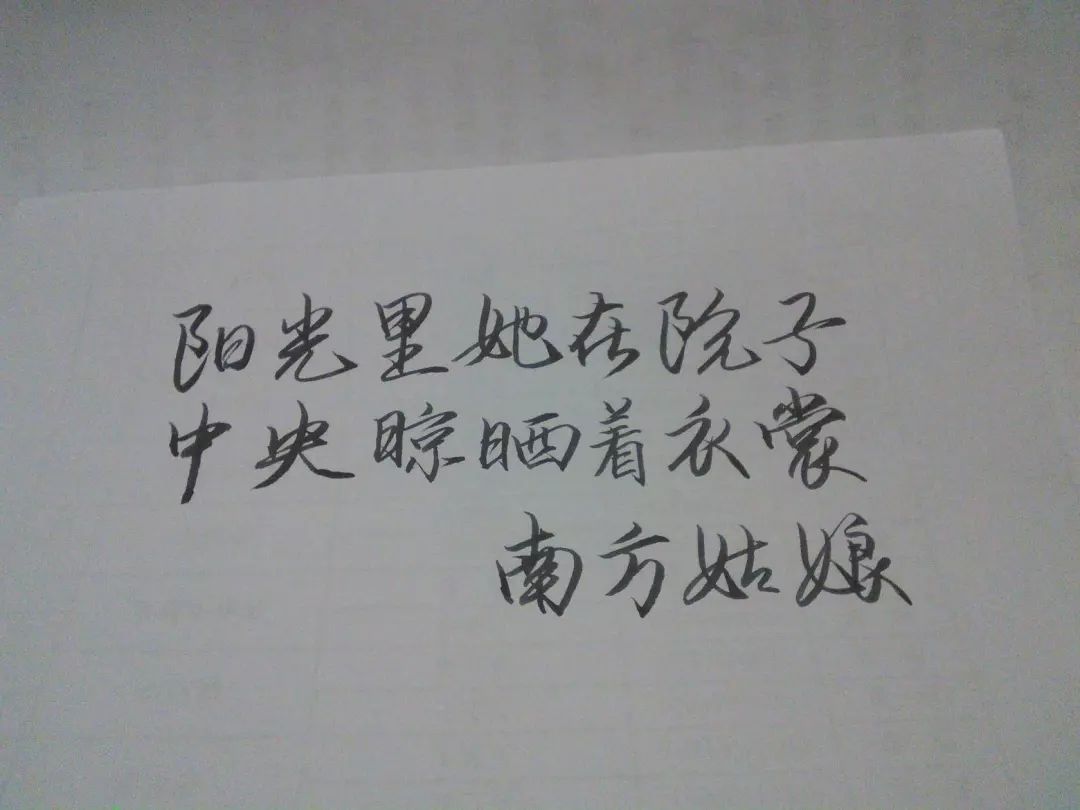 阳光里她在院子
中央晾晒着衣裳
南方姑娘